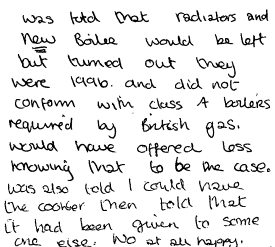 was told that radiators and
new Boiler would be left
but turned out they
were 1996. and did not
conform with class A boilers
required by British gas.
would have offered less
knowing that to be the case.
was also told I could have
the cooker then told that
it had been given to some
one else. No at all happy.